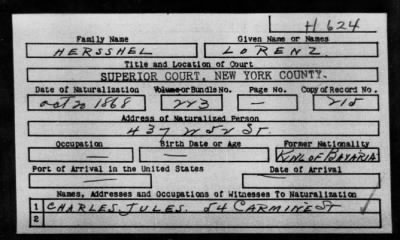 H 624
Family Name Given Name or Names
HERSSHEL LORENZ
Title and Location of Court
SUPERIOR COURT, NEW YORK COUNTY.
Date of Naturalization Volume or Bundle No. Page No. Copy of Record No.
Oct 20 1868 223 — 215
Address of Naturalized Person
437 W 52 St.
Occupation Birth Date or Age Former Nationality
— — King of Bavaria
Port of Arrival in the United States Date of Arrival
— —
Names, Addresses and Occupations of Witnesses To Naturalization
1 CHARLES JULES. 54 CARMINE St
2